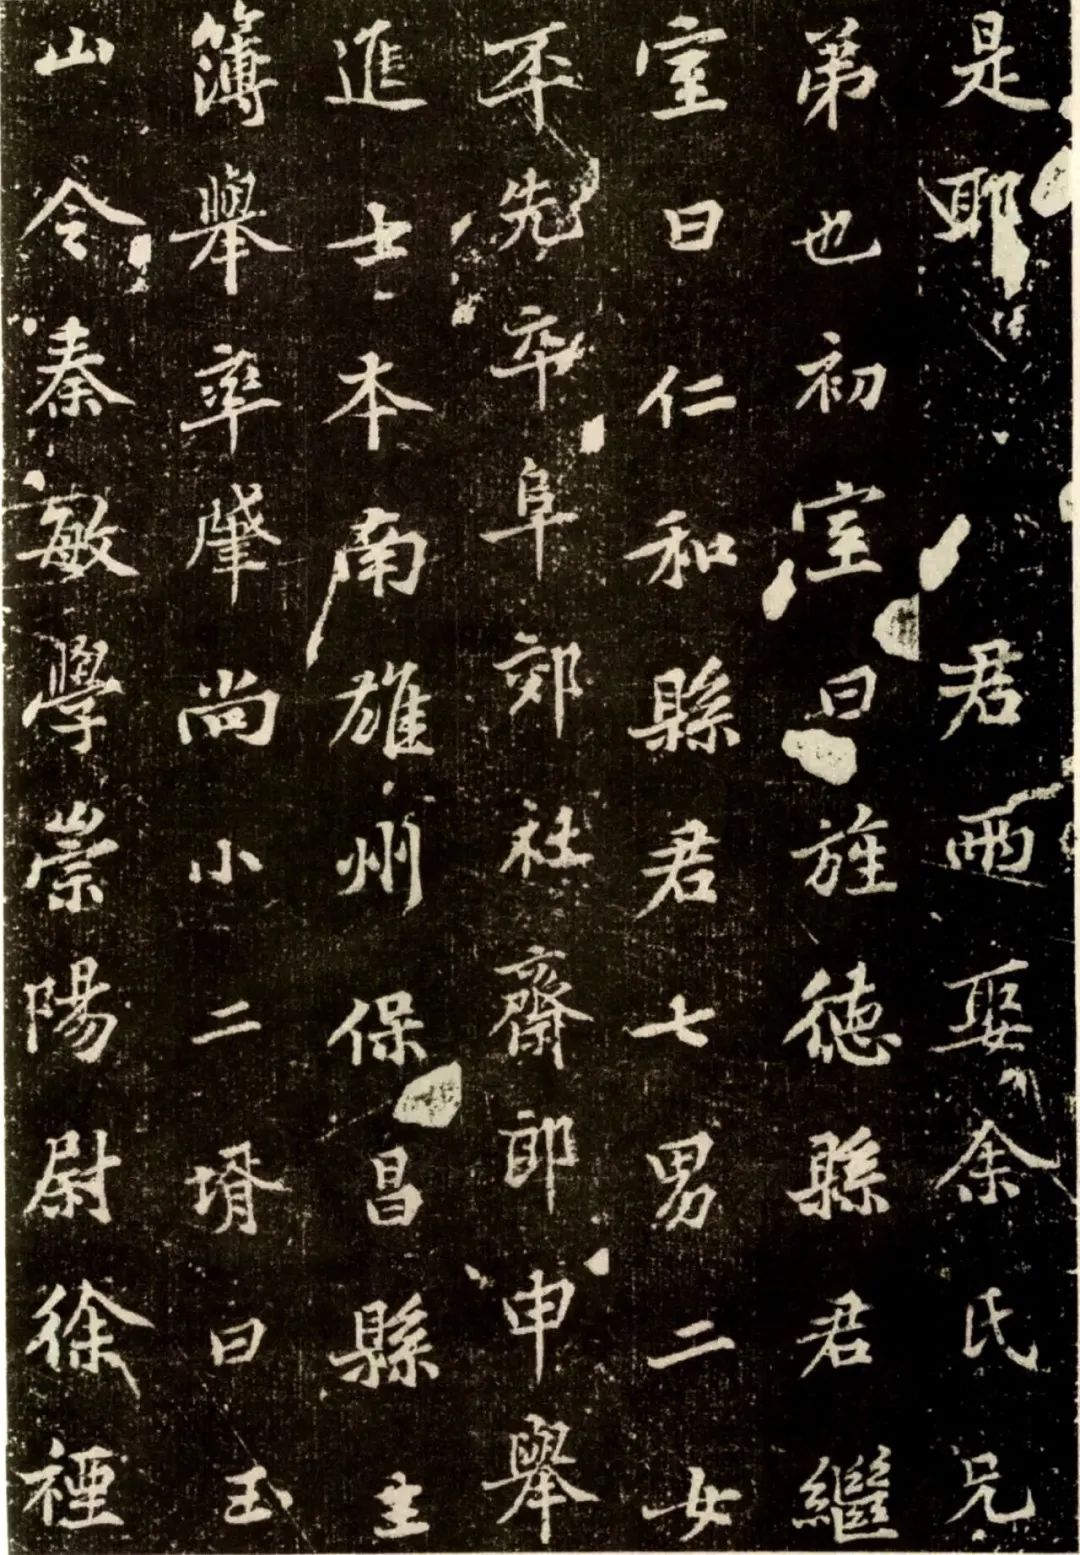 是耶君兩娶余氏兄
弟也初室曰旌德縣君繼
室曰仁和縣君七男二女
丕先卒阜郊社齋郎申舉
進士本南雄州保昌縣主
簿舉率肇尚小二壻曰玉
山令秦敏學崇陽尉徐禋